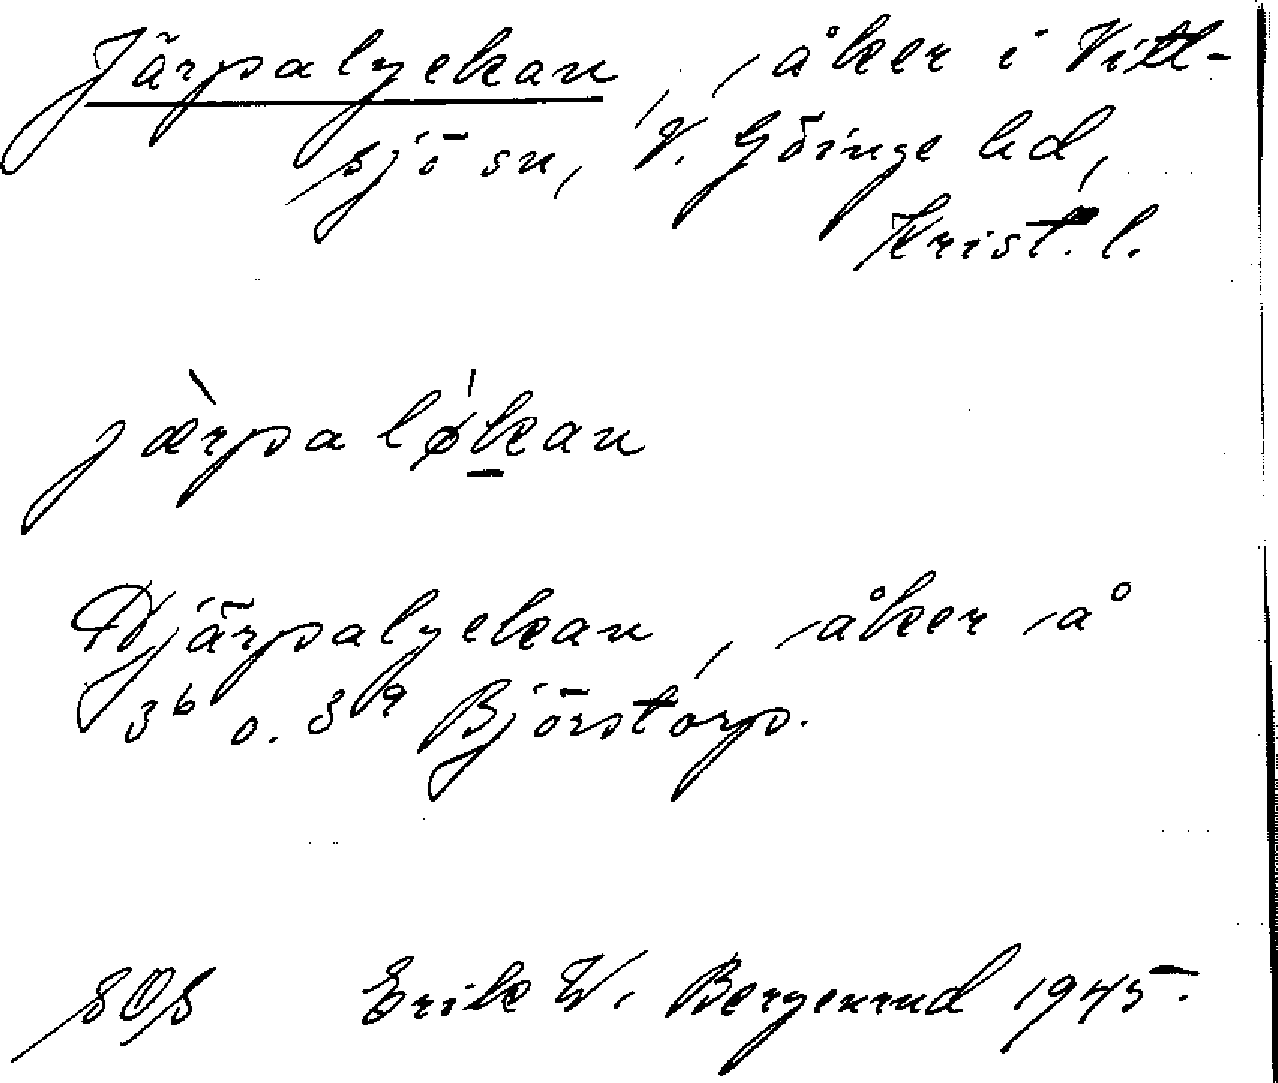 Järpalyckan, åker i Vitt-
sjö sn, V. Göinge hd,
Krist. l.
jærpa løkan
Djärpalyckan, åker å
3ᵇ o. 3ᵃ Björstorp.
SOS Erik W. Bergenrud 1945.